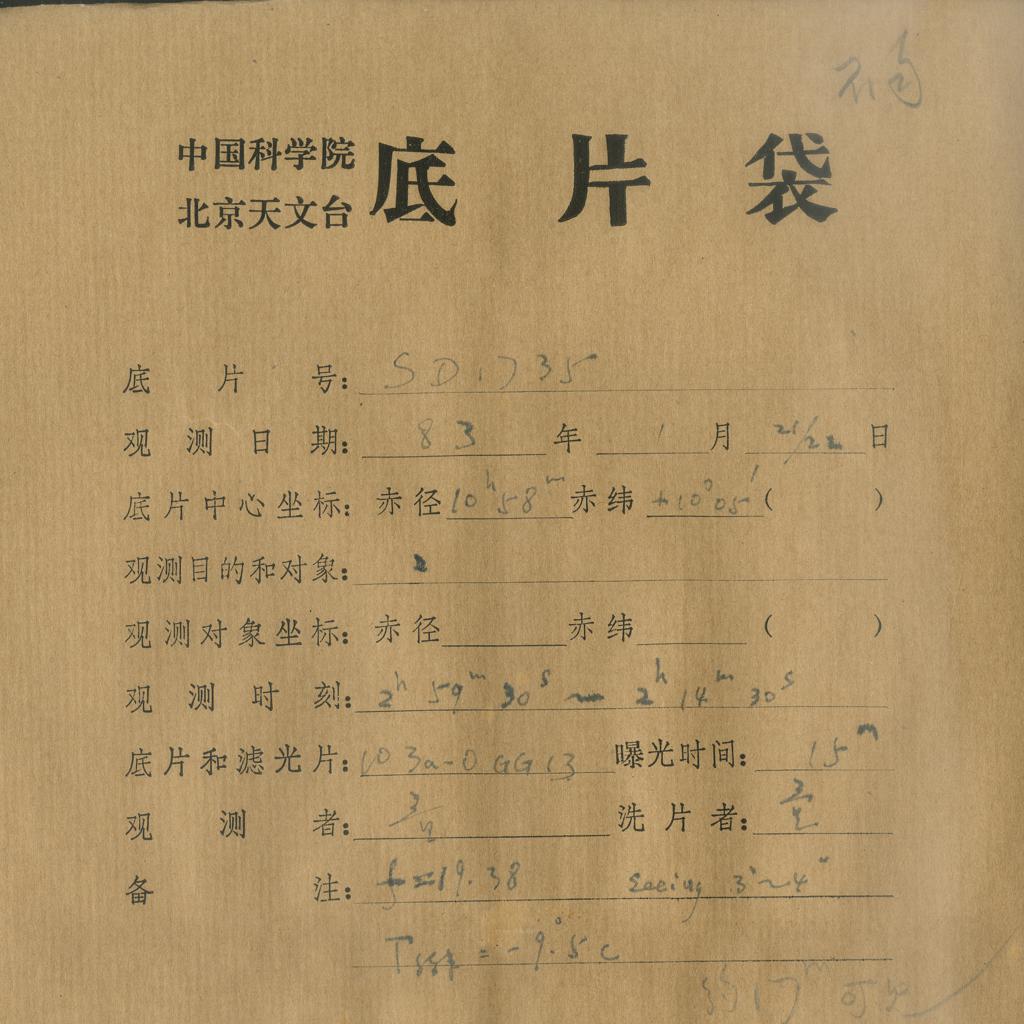 中国科学院
北京天文台
底片袋
底片号: SD1735
观测日期: 83 年 1 月 21/22 日
底片中心坐标: 赤径 10h58m 赤纬 +10°05′ ( )
观测目的和对象:
观测对象坐标: 赤径 赤纬 ( )
观测时刻: 2h 59m 30s ~ 2h 14m 30s
底片和滤光片: 103a-O GG13 曝光时间: 15m
观测者: 洗片者:
备注: f=19.38 Seeing 3"~4"
= -9.°5 C
约17m可见